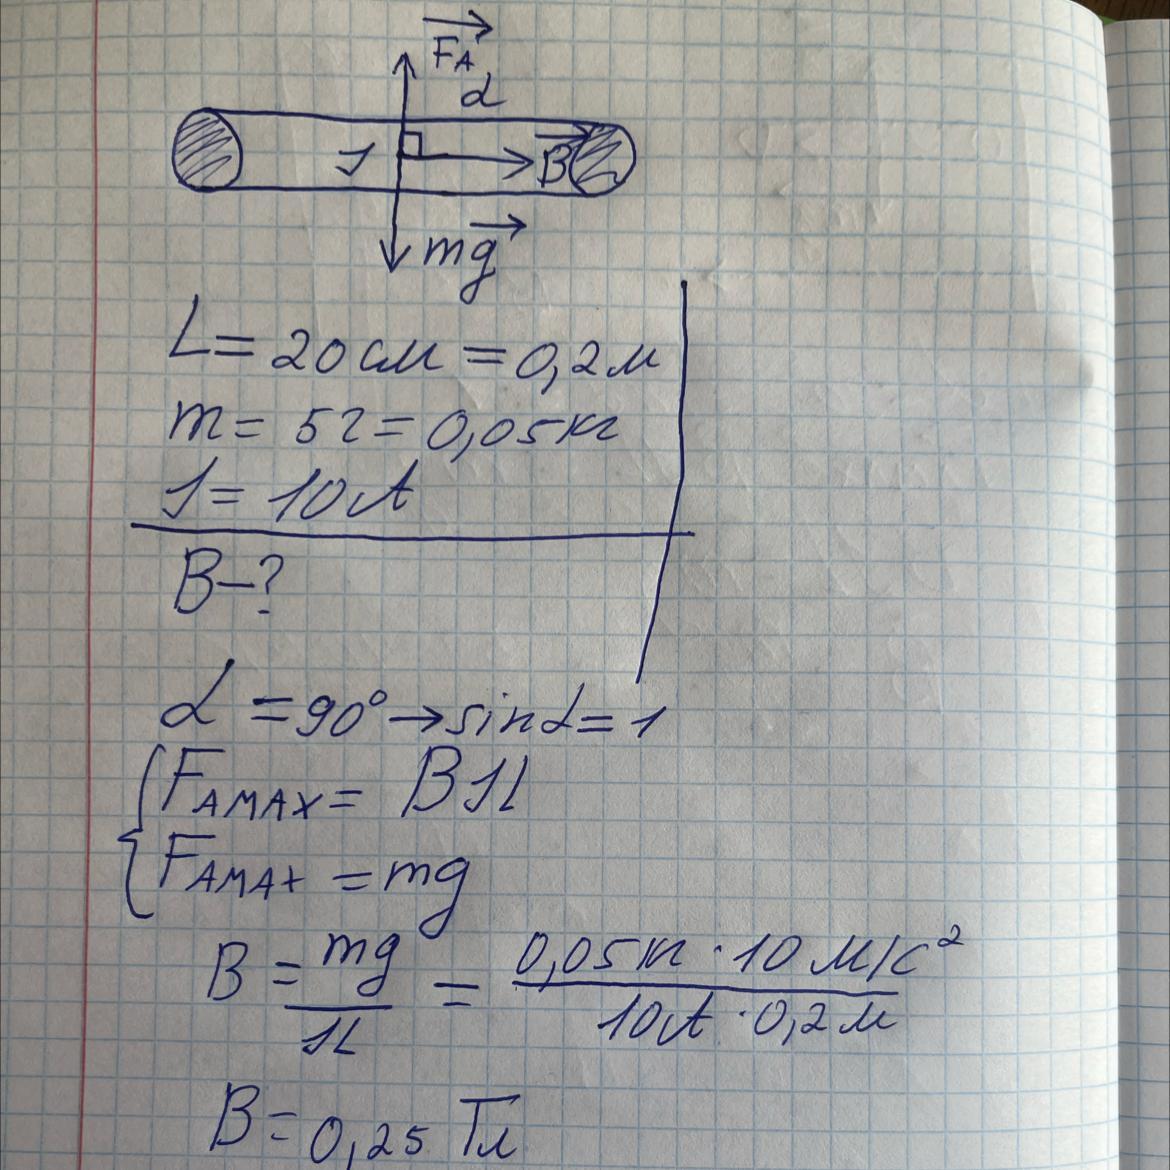 F_A
α
I B
mg
L = 20 см = 0,2 м
m = 5 г = 0,05 кг
I = 10 А
B - ?
α = 90° → sin α = 1
F_AMAX = BIL
F_AMAX = mg
B = mg/IL = 0,05 кг · 10 м/с² / 10 А · 0,2 м
B = 0,25 Тл